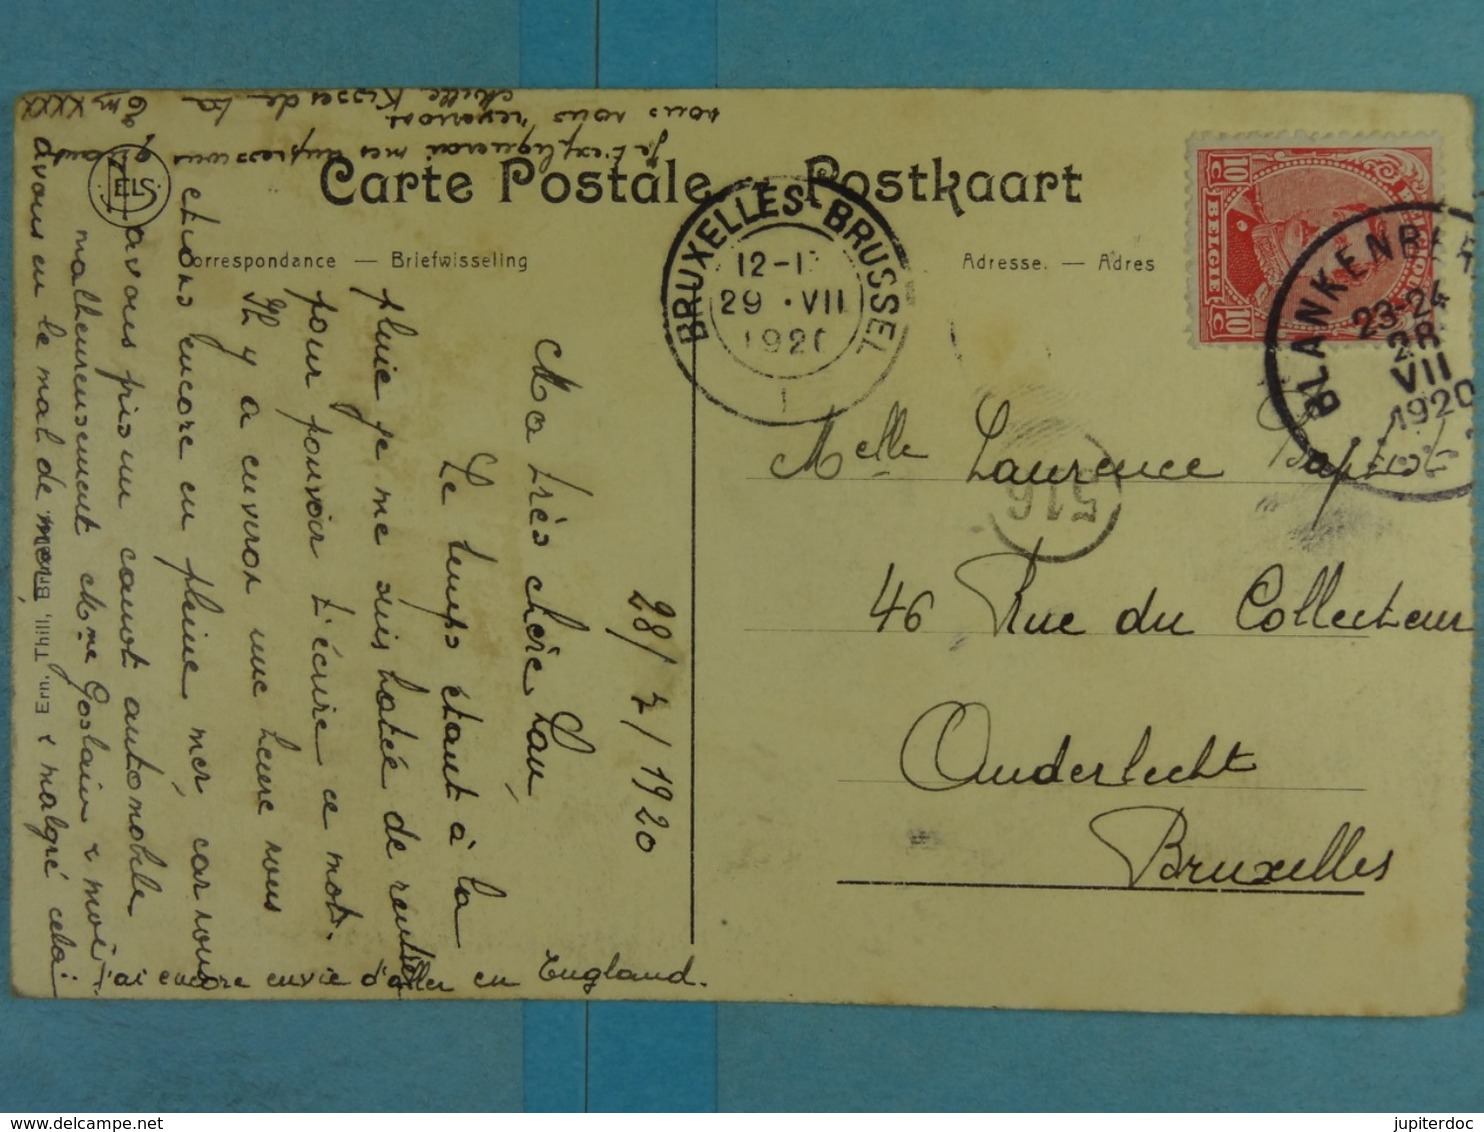 Carte Postale — Postkaart
Correspondance — Briefwisseling
Adresse. — Adres
NELS
Ern. Thill, Brux
BRUXELLES-BRUSSEL
12-1
29 · VII
1920
1
BELGIE
BELGIQUE
10
C
10
C
10
C
BLANKENBER
23-24
28
VII
1920
516
Melle Laurence Baptist
46 Rue du Collecteur
Anderlecht
Bruxelles
28/7/1920
Ma très chère Lau,
Le temps étant à la
pluie je me suis hatée de rentrer
pour pouvoir t'écrire ce mot.
Il y a environ une heure nous
étions encore en pleine mer, car nous
avons pris un canot automobile
malheureusement Mme Goslain & moi
avons eu le mal de mer & malgré cela
j'ai encore envie d'aller en England.
Je t'expliquerai mes impressions quand
nous nous reverrons
Mille Kisses de ta Em xxxx